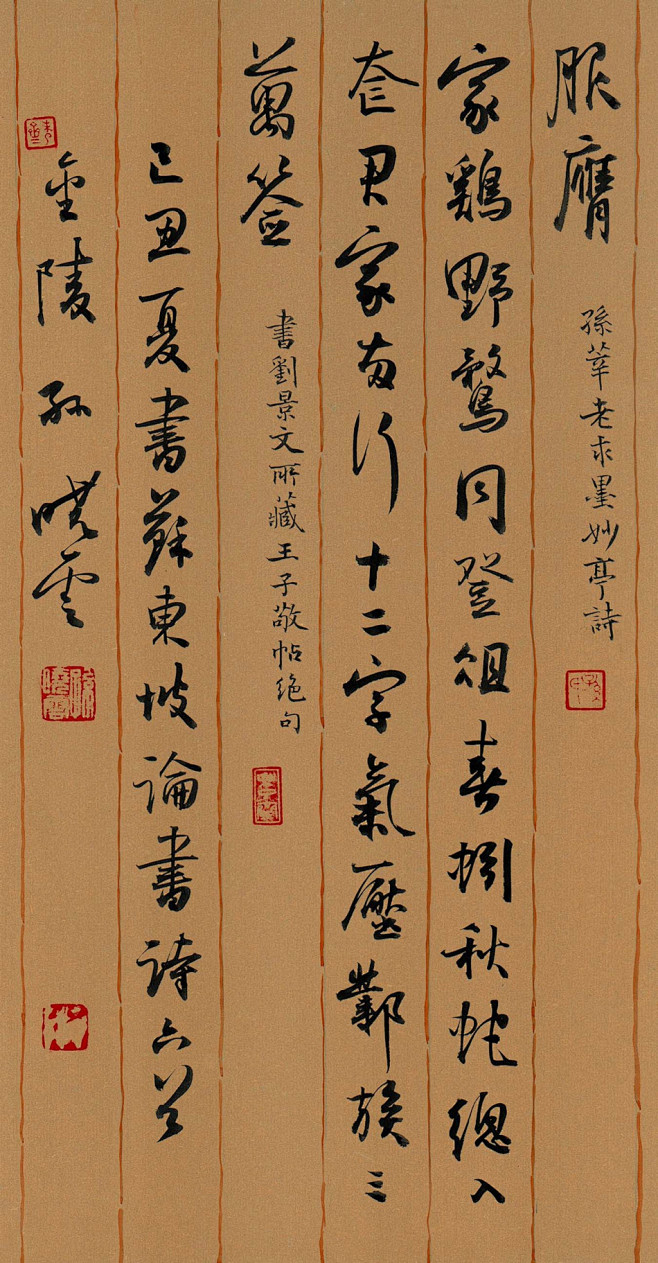 服膺 孫莘老求墨妙亭詩
家鷄野鶩同登俎春蚓秋蛇總入
奩君家兩行十二字氣壓鄴侯三
萬签 書劉景文所藏王子敬帖絶句
己丑夏書蘇東坡論書詩六首
金陵孫曉雲